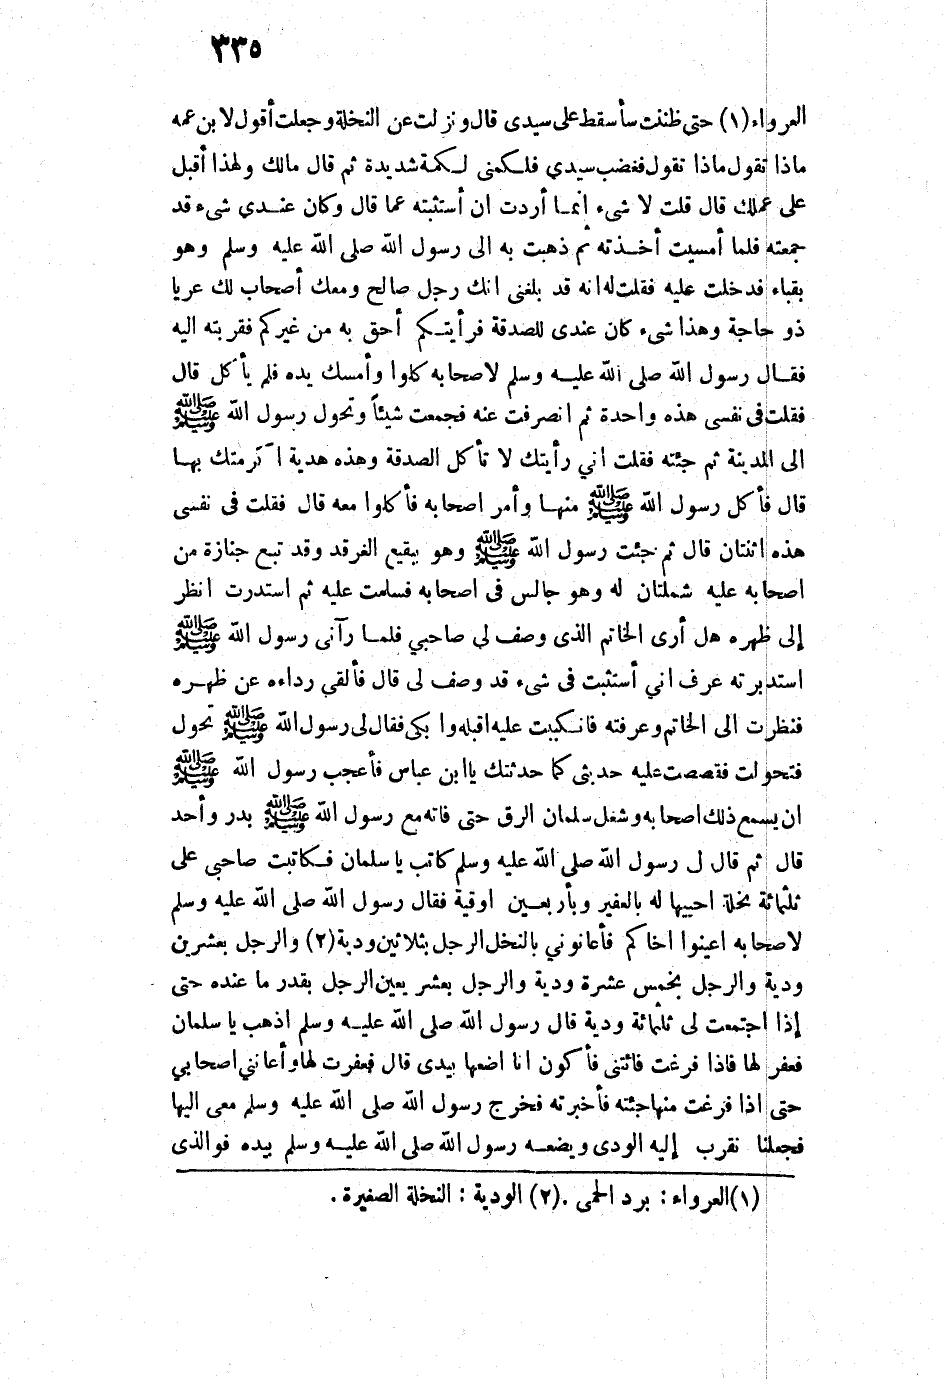 ٣٣٥
العرواء (١) حتى ظننت سأسقط على سيدى قال ونزلت عن النخلة وجعلت أقول لابن عمه
ماذا تقول ماذا تقول فغضب سيدي فلكمنى لكمة شديدة ثم قال مالك ولهذا أقبل
على عملك قال قلت لا شىء انما أردت ان أستثبته عما قال وكان عندي شىء قد
جمعته فلما أمسيت أخذته ثم ذهبت به الى رسول الله صلى الله عليه وسلم وهو
بقباء فدخلت عليه فقلت له انه قد بلغنى انك رجل صالح ومعك أصحاب لك غربا
ذو حاجة وهذا شىء كان عندى للصدقة فرأيتكم أحق به من غيركم فقربته اليه
فقال رسول الله صلى الله عليه وسلم لاصحابه كلوا وأمسك يده فلم يأكل قال
فقلت فى نفسى هذه واحدة ثم انصرفت عنه فجمعت شيئاً وتحول رسول الله ﷺ
الى المدينة ثم جئته فقلت اني رأيتك لا تأكل الصدقة وهذه هدية اكرمتك بها
قال فأكل رسول الله ﷺ منها وأمر اصحابه فأكلوا معه قال فقلت فى نفسى
هذه اثنتان قال ثم جئت رسول الله ﷺ وهو ببقيع الغرقد وقد تبع جنازة من
اصحابه عليه شملتان له وهو جالس فى اصحابه فسلمت عليه ثم استدرت انظر
إلى ظهره هل أرى الخاتم الذى وصف لى صاحبي فلما رآنى رسول الله ﷺ
استدبرته عرف اني أستثبت فى شىء قد وصف لى قال فألقي رداءه عن ظهره
فنظرت الى الخاتم وعرفته فانكببت عليه اقبله وابكى فقال لى رسول الله ﷺ تحول
فتحولت فقصصت عليه حديثى كما حدثتك ياابن عباس فأعجب رسول الله ﷺ
ان يسمع ذلك اصحابه وشغل سلمان الرق حتى فاته مع رسول الله ﷺ بدر وأحد
قال ثم قال ل رسول الله صلى الله عليه وسلم كاتب يا سلمان فكاتبت صاحبى على
ثلثمائة نخلة احييها له بالعفير وبأربعين اوقية فقال رسول الله صلى الله عليه وسلم
لاصحابه اعينوا اخاكم فأعانوني بالنخل الرجل بثلاثين ودية (٢) والرجل بعشرين
ودية والرجل بخمس عشرة ودية والرجل بعشر يعين الرجل بقدر ما عنده حتى
إذا اجتمعت لى ثلثمائة ودية قال رسول الله صلى الله عليه وسلم اذهب يا سلمان
فعفر لها فاذا فرغت فائتنى فأكون انا اضعها بيدى قال فعفرت لها وأعانني اصحابي
حتى اذا فرغت منها جئته فأخبرته فخرج رسول الله صلى الله عليه وسلم معى اليها
فجعلنا نقرب إليه الودى ويضعه رسول الله صلى الله عليه وسلم بيده فوالذى
(١) العرواء : برد الحمى . (٢) الودية : النخلة الصغيرة .